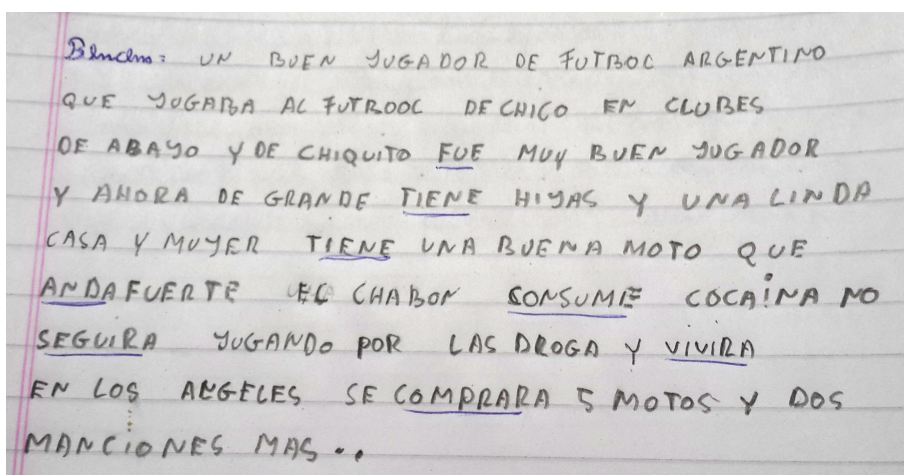 UN BUEN JUGADOR DE FUTBOL ARGENTINO
QUE JUGABA AL FUTBOOL DE CHICO EN CLUBES
DE ABAJO Y DE CHIQUITO FUE MUY BUEN JUGADOR
Y AHORA DE GRANDE TIENE HIJAS Y UNA LINDA
CASA Y MUJER TIENE UNA BUENA MOTO QUE
ANDA FUERTE EL CHABON CONSUME COCAINA NO
SEGUIRA JUGANDO POR LAS DROGA Y VIVIRA
EN LOS ANGELES SE COMPRARA 5 MOTOS Y DOS
MANCIONES MAS..